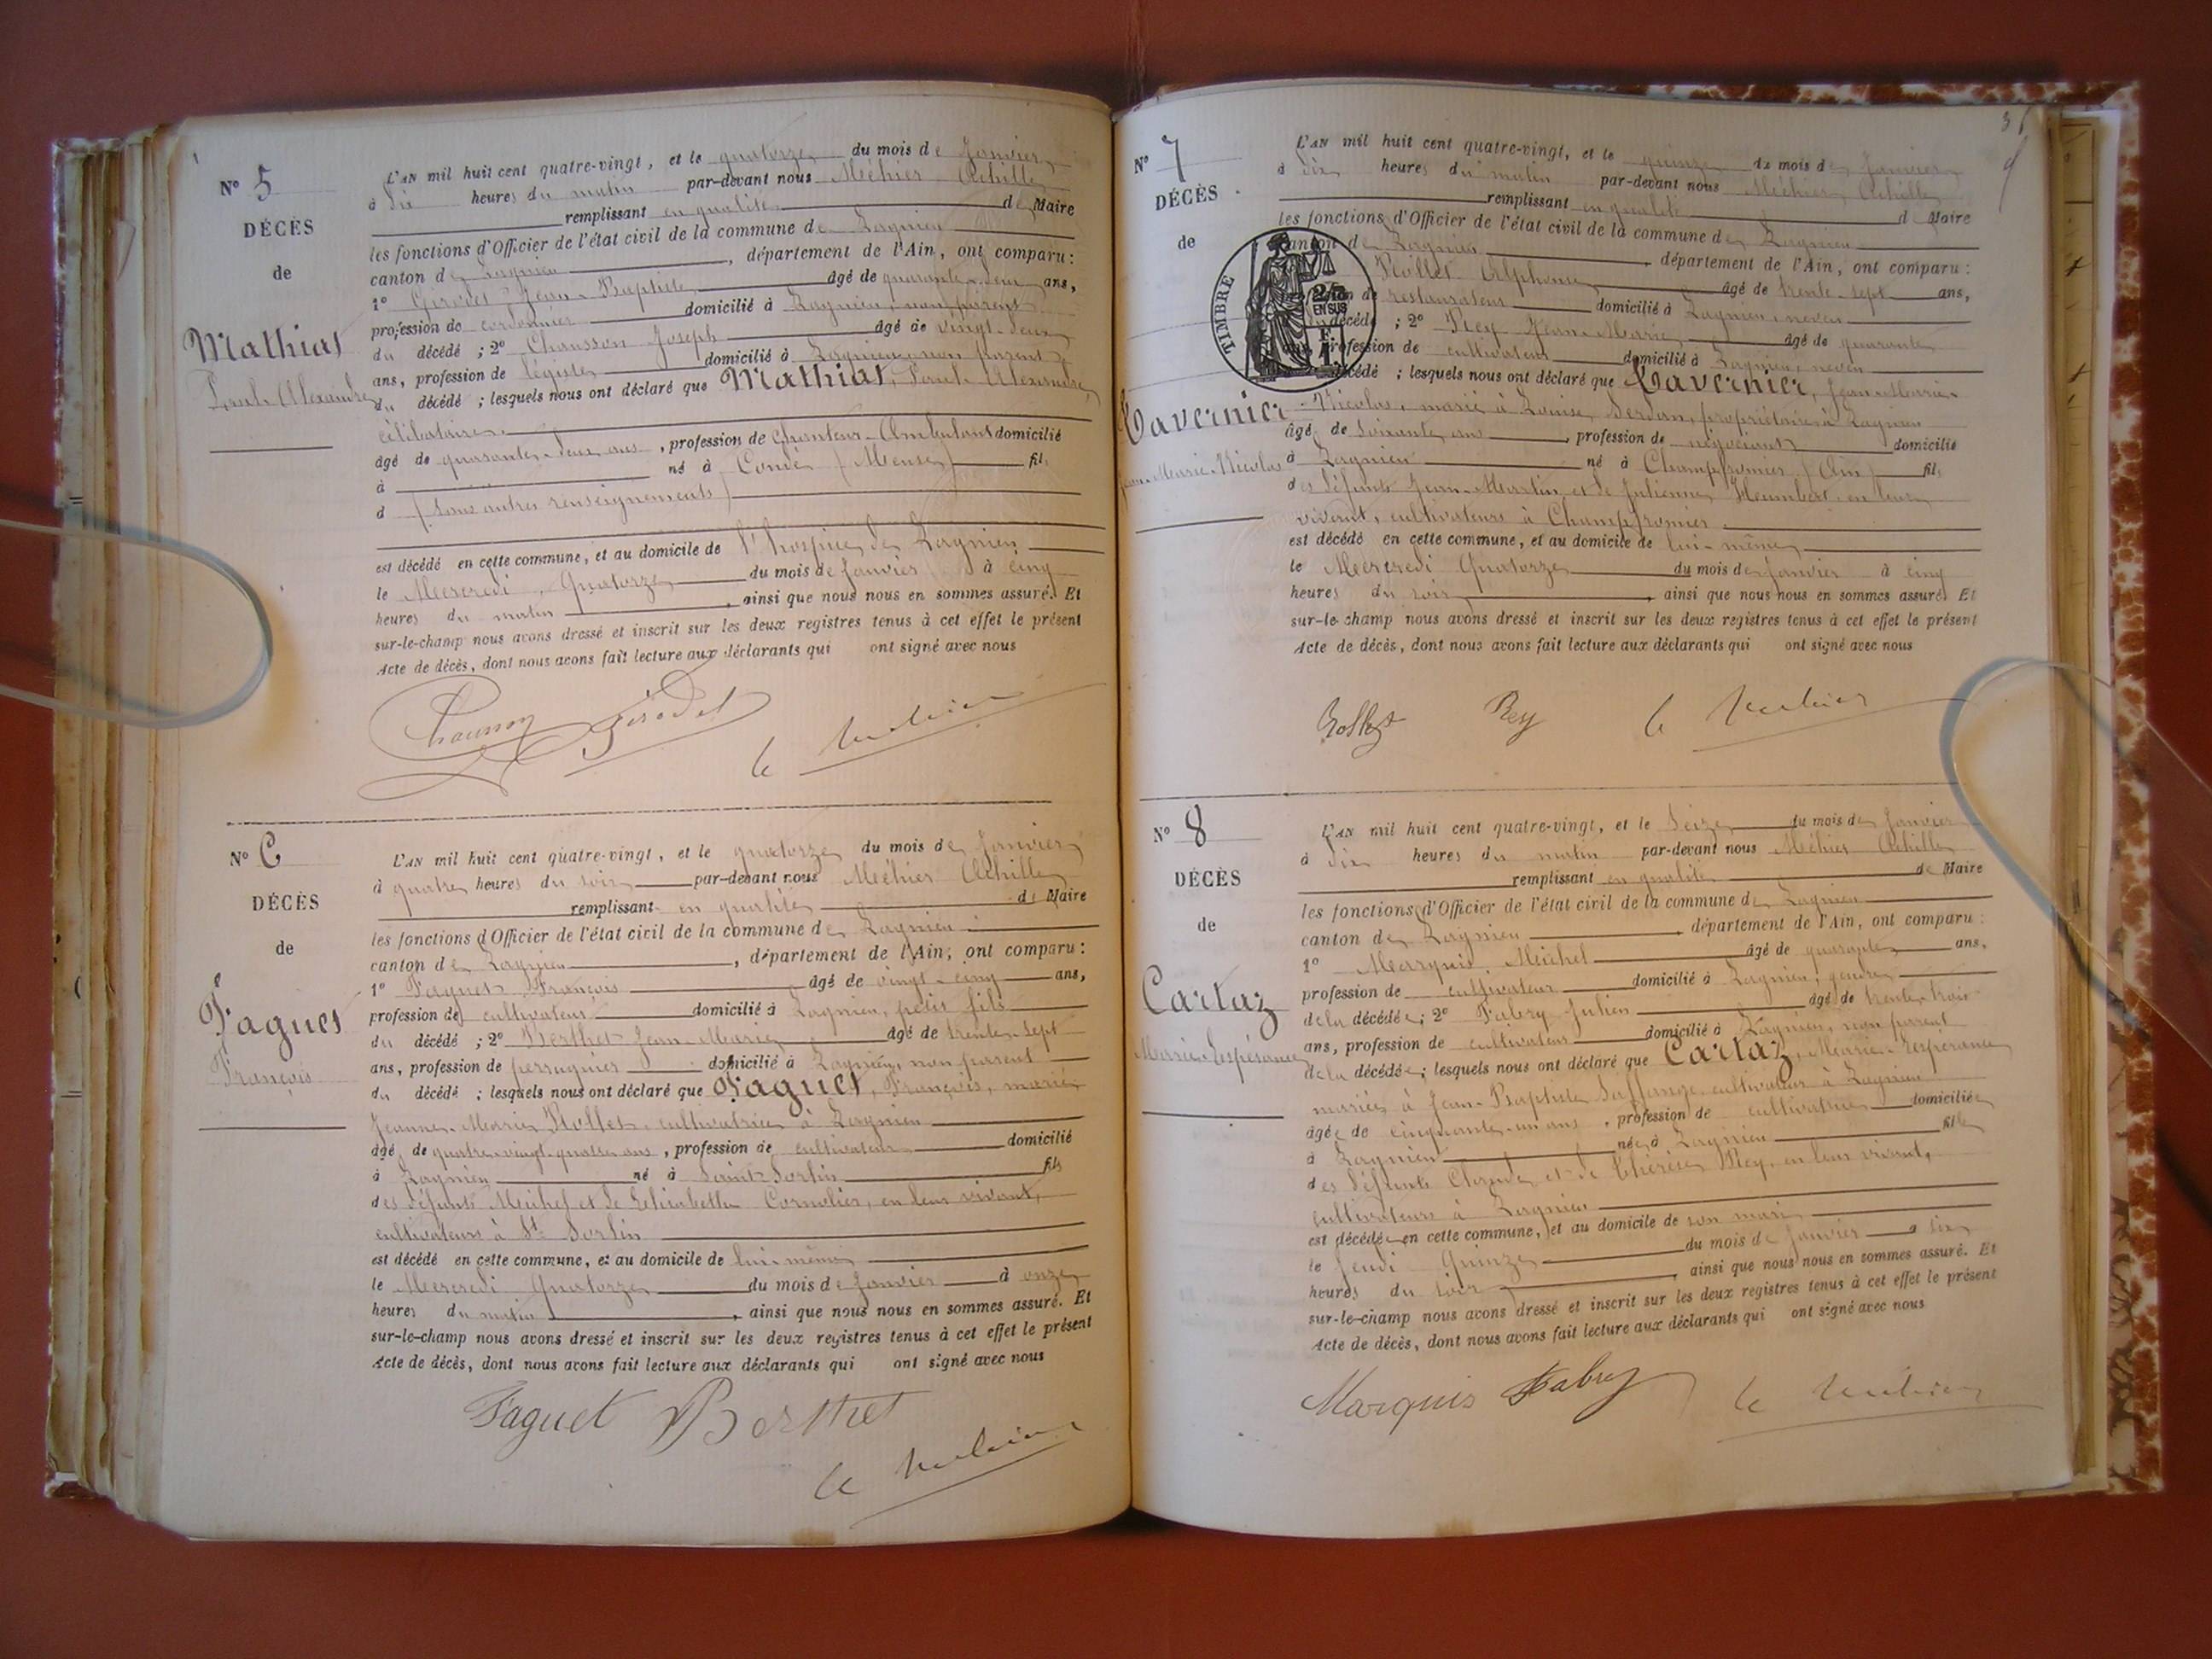 N° 5
DÉCÈS
de
Mathias
Paul-Alexandre
L'AN mil huit cent quatre-vingt, et le quatorze du mois de Janvier
à dix heures du matin par-devant nous Méhier Achille
remplissant en qualité de Maire
les fonctions d'Officier de l'état civil de la commune de Lagnieu
canton de Lagnieu, département de l'Ain, ont comparu :
1° Girodet Jean-Baptiste âgé de quarante-deux ans,
profession de cordonnier domicilié à Lagnieu, non parent
du décédé ; 2° Chausson Joseph âgé de vingt-deux
ans, profession de légiste domicilié à Lagnieu, non parent
du décédé ; lesquels nous ont déclaré que Mathias, Paul-Alexandre,
célibataire
âgé de quarante-deux ans, profession de Chanteur-Ambulant domicilié
à né à Condé (Meuse) fils
d (sans autres renseignements)
est décédé en cette commune, et au domicile de l'hospice de Lagnieu
le Mercredi Quatorze du mois de Janvier à cinq
heures du matin, ainsi que nous nous en sommes assuré. Et
sur-le-champ nous avons dressé et inscrit sur les deux registres tenus à cet effet le présent
Acte de décès, dont nous avons fait lecture aux déclarants qui ont signé avec nous
Chausson Girodet
N° 6
DÉCÈS
de
Faguet
François
L'AN mil huit cent quatre-vingt, et le quatorze du mois de Janvier
à quatre heures du soir par-devant nous Méhier Achille
remplissant en qualité de Maire
les fonctions d'Officier de l'état civil de la commune de Lagnieu
canton de Lagnieu, département de l'Ain, ont comparu :
1° Faguet François âgé de vingt-cinq ans,
profession de cultivateur domicilié à Lagnieu, petit fils
du décédé ; 2° Berthet Jean-Marie âgé de trente-sept
ans, profession de perruquier domicilié à Lagnieu, non parent
du décédé ; lesquels nous ont déclaré que Faguet, François, marié
Jeanne-Marie Rollet cultivatrice à Lagnieu
âgé de quatre-vingt-quatre ans, profession de cultivateur domicilié
à Lagnieu né à Saint-Sorlin fils
des défunts Michel et de Cornelier, en leur vivant,
cultivateurs à St Sorlin
est décédé en cette commune, et au domicile de lui-même
le Mercredi Quatorze du mois de Janvier à onze
heures du matin, ainsi que nous nous en sommes assuré. Et
sur-le-champ nous avons dressé et inscrit sur les deux registres tenus à cet effet le présent
Acte de décès, dont nous avons fait lecture aux déclarants qui ont signé avec nous
Faguet Berthet
N° 7
DÉCÈS
de
Tavernier
Jean-Marie-Nicolas
TIMBRE
25
EN SUS
L'AN mil huit cent quatre-vingt, et le quinze du mois de Janvier
à dix heures du matin par-devant nous Méhier Achille
remplissant en qualité de Maire
les fonctions d'Officier de l'état civil de la commune de Lagnieu
canton de Lagnieu, département de l'Ain, ont comparu :
Rollet Alphonse âgé de trente-sept ans,
restaurateur domicilié à Lagnieu, neveu
décédé ; 2° Rey Jean-Marie âgé de quarante
profession de cultivateur domicilié à Lagnieu, neveu
décédé ; lesquels nous ont déclaré que Tavernier, Jean-Marie-
-Nicolas, marié à Louise Serdan, propriétaire à Lagnieu
âgé de soixante ans, profession de négociant domicilié
à Lagnieu né à Champfromier (Ain) fils
des défunts Jean-Martin et de Julienne Humbert, en leur
vivant, cultivateurs à Champfromier
est décédé en cette commune, et au domicile de lui-même
le Mercredi Quatorze du mois de Janvier à cinq
heures du soir, ainsi que nous nous en sommes assuré. Et
sur-le-champ nous avons dressé et inscrit sur les deux registres tenus à cet effet le présent
Acte de décès, dont nous avons fait lecture aux déclarants qui ont signé avec nous
Rollet Rey
N° 8
DÉCÈS
de
Cartaz
Marie-Lespérance
L'AN mil huit cent quatre-vingt, et le seize du mois de Janvier
à dix heures du matin par-devant nous Méhier Achille
remplissant en qualité de Maire
les fonctions d'Officier de l'état civil de la commune de Lagnieu
canton de Lagnieu, département de l'Ain, ont comparu :
1° Marquis Michel âgé de quarante ans,
profession de cultivateur domicilié à Lagnieu, gendre
de la décédée ; 2° Fabry Julien âgé de trente-trois
ans, profession de cultivateur domicilié à Lagnieu, non parent
de la décédée ; lesquels nous ont déclaré que Cartaz, Marie-
mariée à Jean-Baptiste cultivateur à Lagnieu
âgée de cinquante-un ans, profession de cultivatrice domiciliée
à Lagnieu née à Lagnieu fille
des défunts Claude et de Thérèse Rey, en leur vivant,
cultivateurs à Lagnieu
est décédée en cette commune, et au domicile de son mari
le Jeudi Quinze du mois de Janvier à six
heures du soir, ainsi que nous nous en sommes assuré. Et
sur-le-champ nous avons dressé et inscrit sur les deux registres tenus à cet effet le présent
Acte de décès, dont nous avons fait lecture aux déclarants qui ont signé avec nous
Marquis Fabry